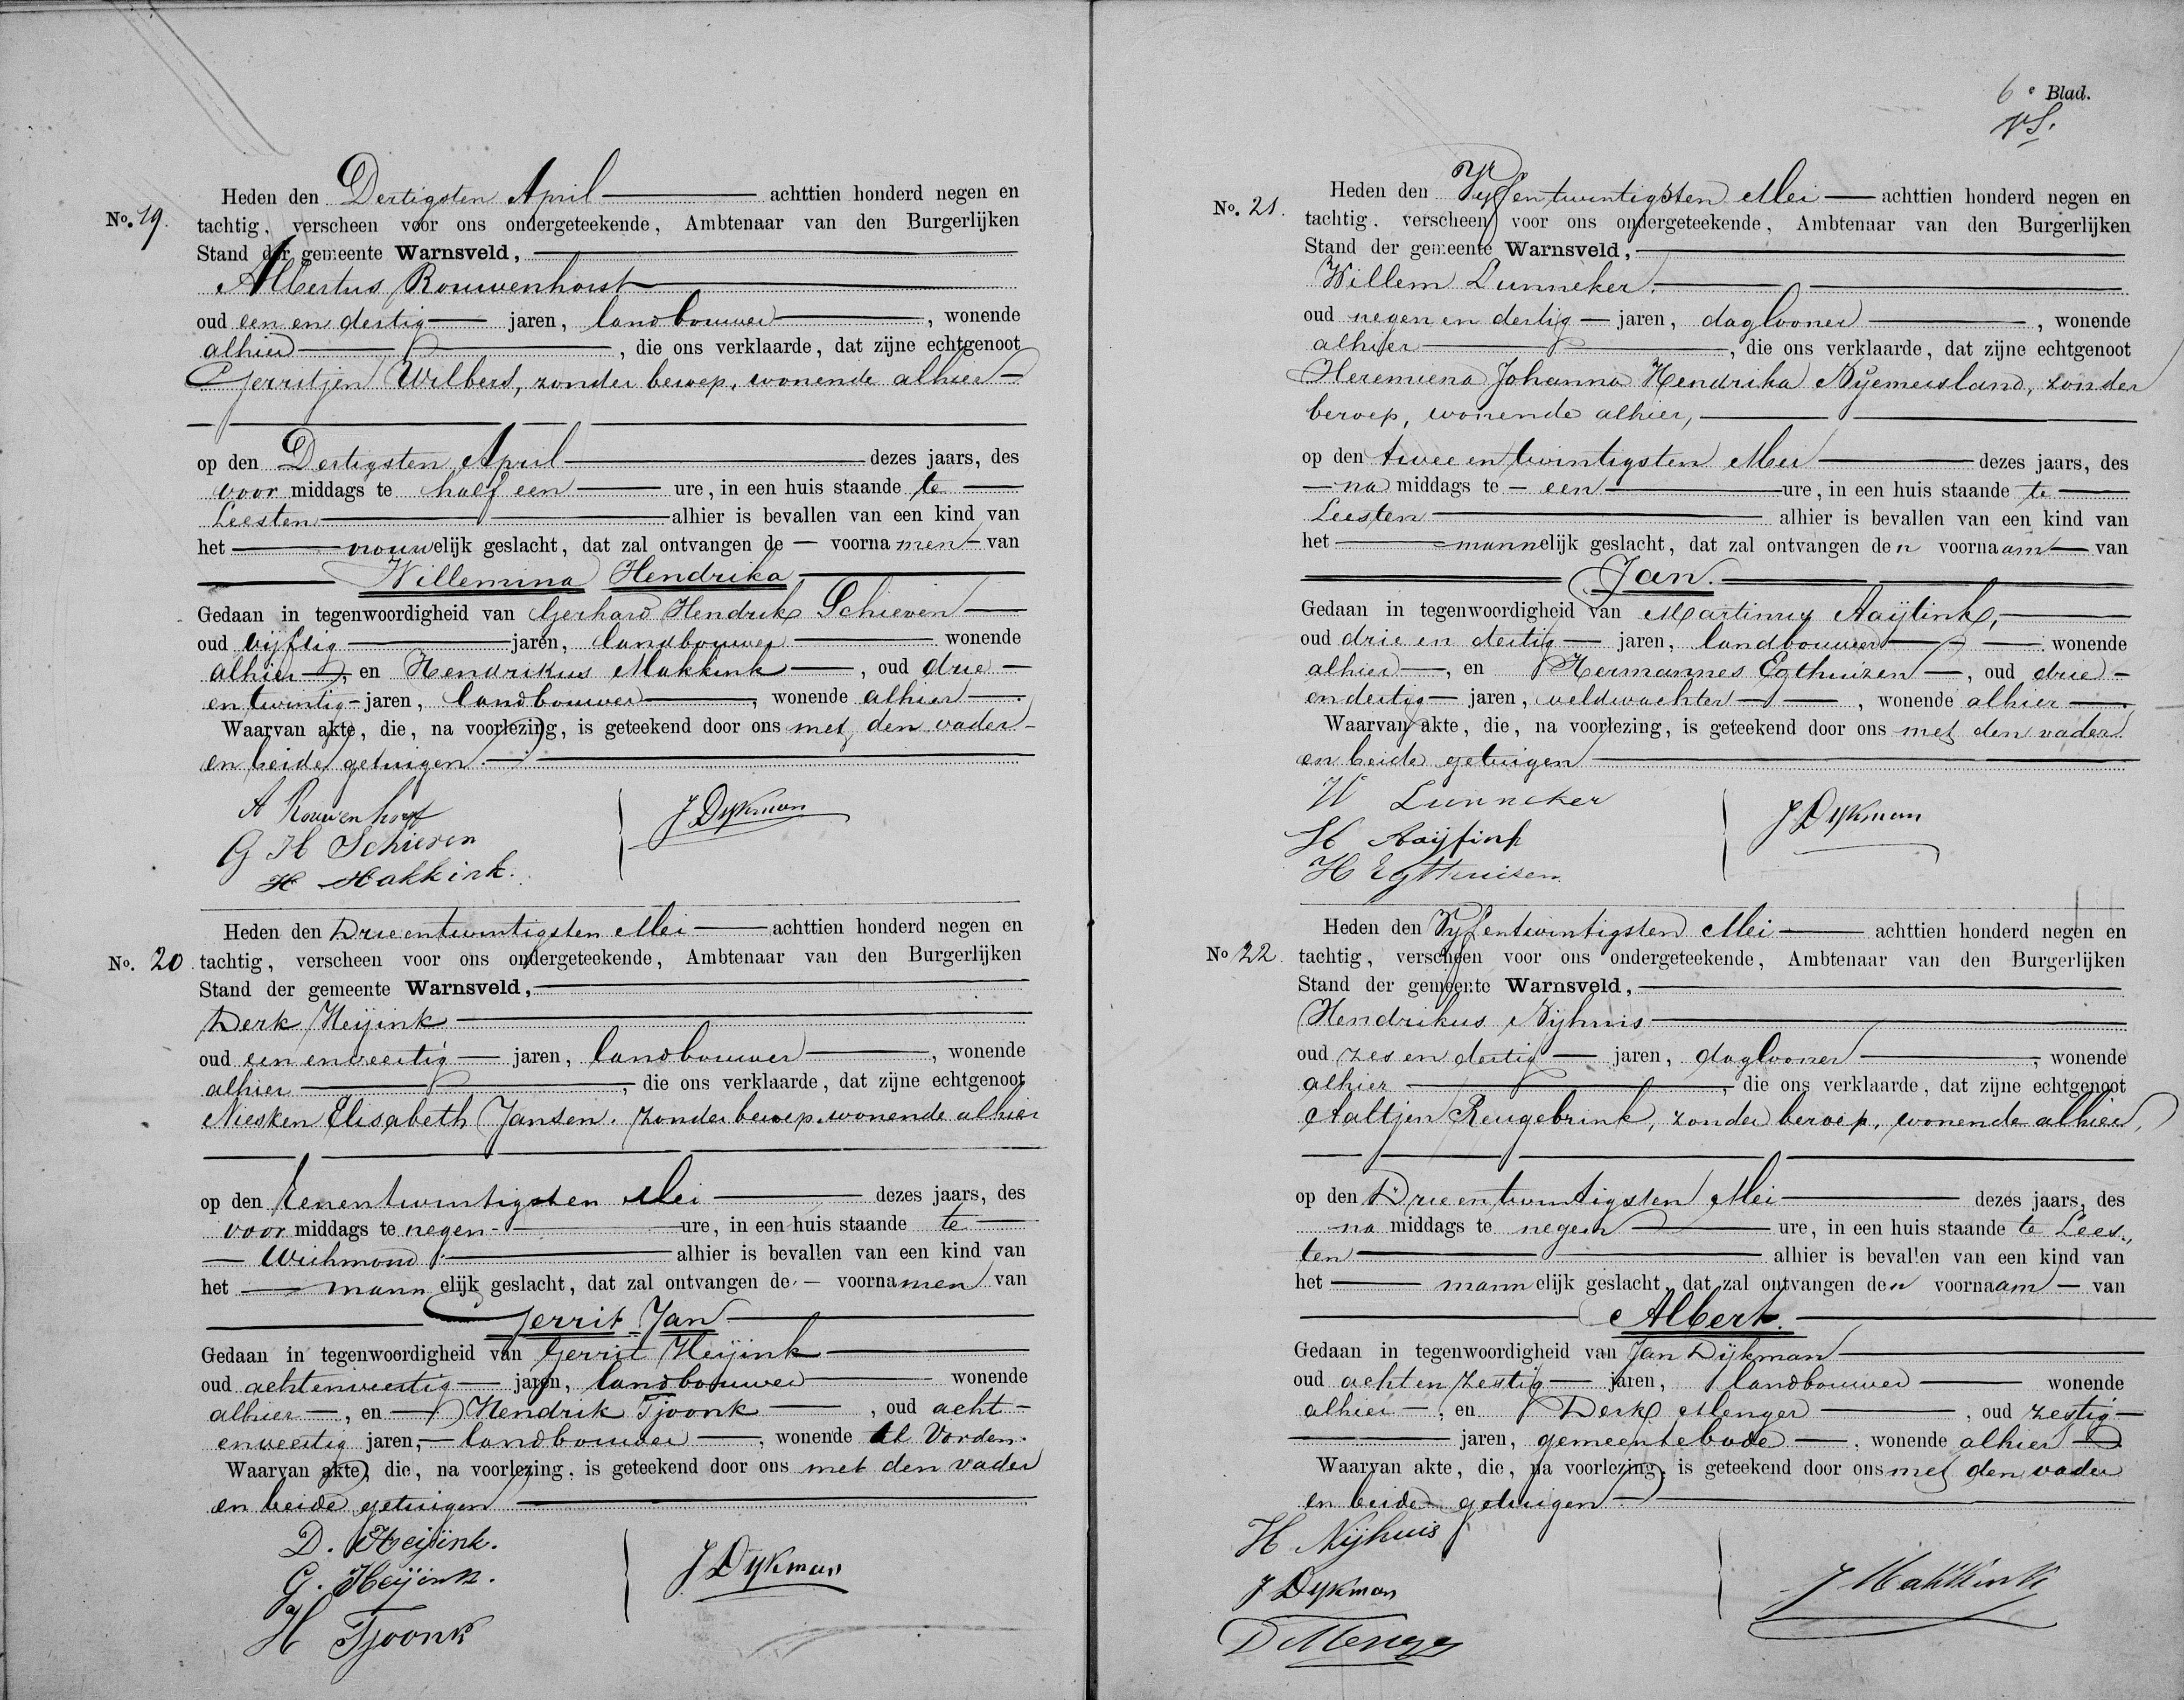 Heden den Dertigsten April achttien honderd negen en
No. 19. tachtig, verscheen voor ons ondergeteekende, Ambtenaar van den Burgerlijken
Stand der gemeente Warnsveld,
Albertus Rouwenhorst
oud een en dertig jaren, landbouwer, wonende
alhier, die ons verklaarde, dat zijne echtgenoot
Gerritjen Wilbers, zonder beroep, wonende alhier
op den Dertigsten April dezes jaars, des
voor middags te half een ure, in een huis staande te
Leesten alhier is bevallen van een kind van
het vrouwelijk geslacht, dat zal ontvangen de voornamen van
Willemina Hendrika
Gedaan in tegenwoordigheid van Gerhard Hendrik Schieven
oud vijftig jaren, landbouwer wonende
alhier, en Hendrikus Makkink, oud drie
en twintig jaren, landbouwer, wonende alhier.
Waarvan akte, die, na voorlezing, is geteekend door ons met den vader
en beide getuigen.
A Rouwenhorst
G H Schieven
H Makkink.
J Dykman
Heden den Drieentwintigsten Mei achttien honderd negen en
No. 20. tachtig, verscheen voor ons ondergeteekende, Ambtenaar van den Burgerlijken
Stand der gemeente Warnsveld,
Derk Heijink
oud een enveertig jaren, landbouwer, wonende
alhier, die ons verklaarde, dat zijne echtgenoot
Niesken Elisabeth Jansen, zonder beroep, wonende alhier
op den Eenentwintigsten Mei dezes jaars, des
voor middags te negen ure, in een huis staande te
Wichmond alhier is bevallen van een kind van
het mannelijk geslacht, dat zal ontvangen de voornamen van
Gerrit Jan
Gedaan in tegenwoordigheid van Gerrit Heijink
oud achtenveertig jaren, landbouwer wonende
alhier, en Hendrik Tjoonk, oud acht
enveertig jaren, landbouwer, wonende te Vorden.
Waarvan akte, die, na voorlezing, is geteekend door ons met den vader
en beide getuigen
D. Heijink.
G. Heijink.
H Tjoonk
J Dykman
6e Blad.
Heden den Vyfentwintigsten Mei achttien honderd negen en
No. 21. tachtig, verscheen voor ons ondergeteekende, Ambtenaar van den Burgerlijken
Stand der gemeente Warnsveld,
Willem Lunneker.
oud negen en dertig jaren, daglooner, wonende
alhier, die ons verklaarde, dat zijne echtgenoot
Johanna Hendrika zonder
beroep, wonende alhier,
op den twee en twintigsten Mei dezes jaars, des
na middags te een ure, in een huis staande te
Leesten alhier is bevallen van een kind van
het mannelijk geslacht, dat zal ontvangen den voornaam van
Jan.
Gedaan in tegenwoordigheid van Martinus
oud drie en dertig jaren, landbouwer wonende
alhier, en Hermannes Egthuizen, oud drie
en dertig jaren, veldwachter, wonende alhier.
Waarvan akte, die, na voorlezing, is geteekend door ons met den vader
en beide getuigen
W Lunneker
H Egthuisen
J Dykman
Heden den Vyfentwintigsten Mei achttien honderd negen en
No 22. tachtig, verscheen voor ons ondergeteekende, Ambtenaar van den Burgerlijken
Stand der gemeente Warnsveld,
Hendrikus Nijhuis
oud zes en dertig jaren, daglooner, wonende
alhier, die ons verklaarde, dat zijne echtgenoot
Aaltjen Reugebrink, zonder beroep, wonende alhier,
op den Drieentwintigsten Mei dezes jaars, des
na middags te negen ure, in een huis staande te Lees„
ten alhier is bevallen van een kind van
het mannelijk geslacht, dat zal ontvangen den voornaam van
Albert.
Gedaan in tegenwoordigheid van Jan Dijkman
oud acht en zestig jaren, landbouwer wonende
alhier, en Derk Menger, oud zestig
jaren, gemeentebode, wonende alhier.
Waarvan akte, die, na voorlezing, is geteekend door ons met den vader
en beide getuigen.
H Nijhuis
J Dykman
D Menger
J Makkink